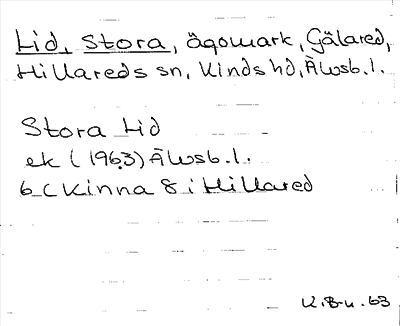 Lid, Stora, ägomark, Gälared,
Hillareds sn, Kinds hd, Älvsb. l.
Stora Lid
ek (1963) Älvsb. l.
6 C Kinna 8 i Hillared
K. Br-u. 63